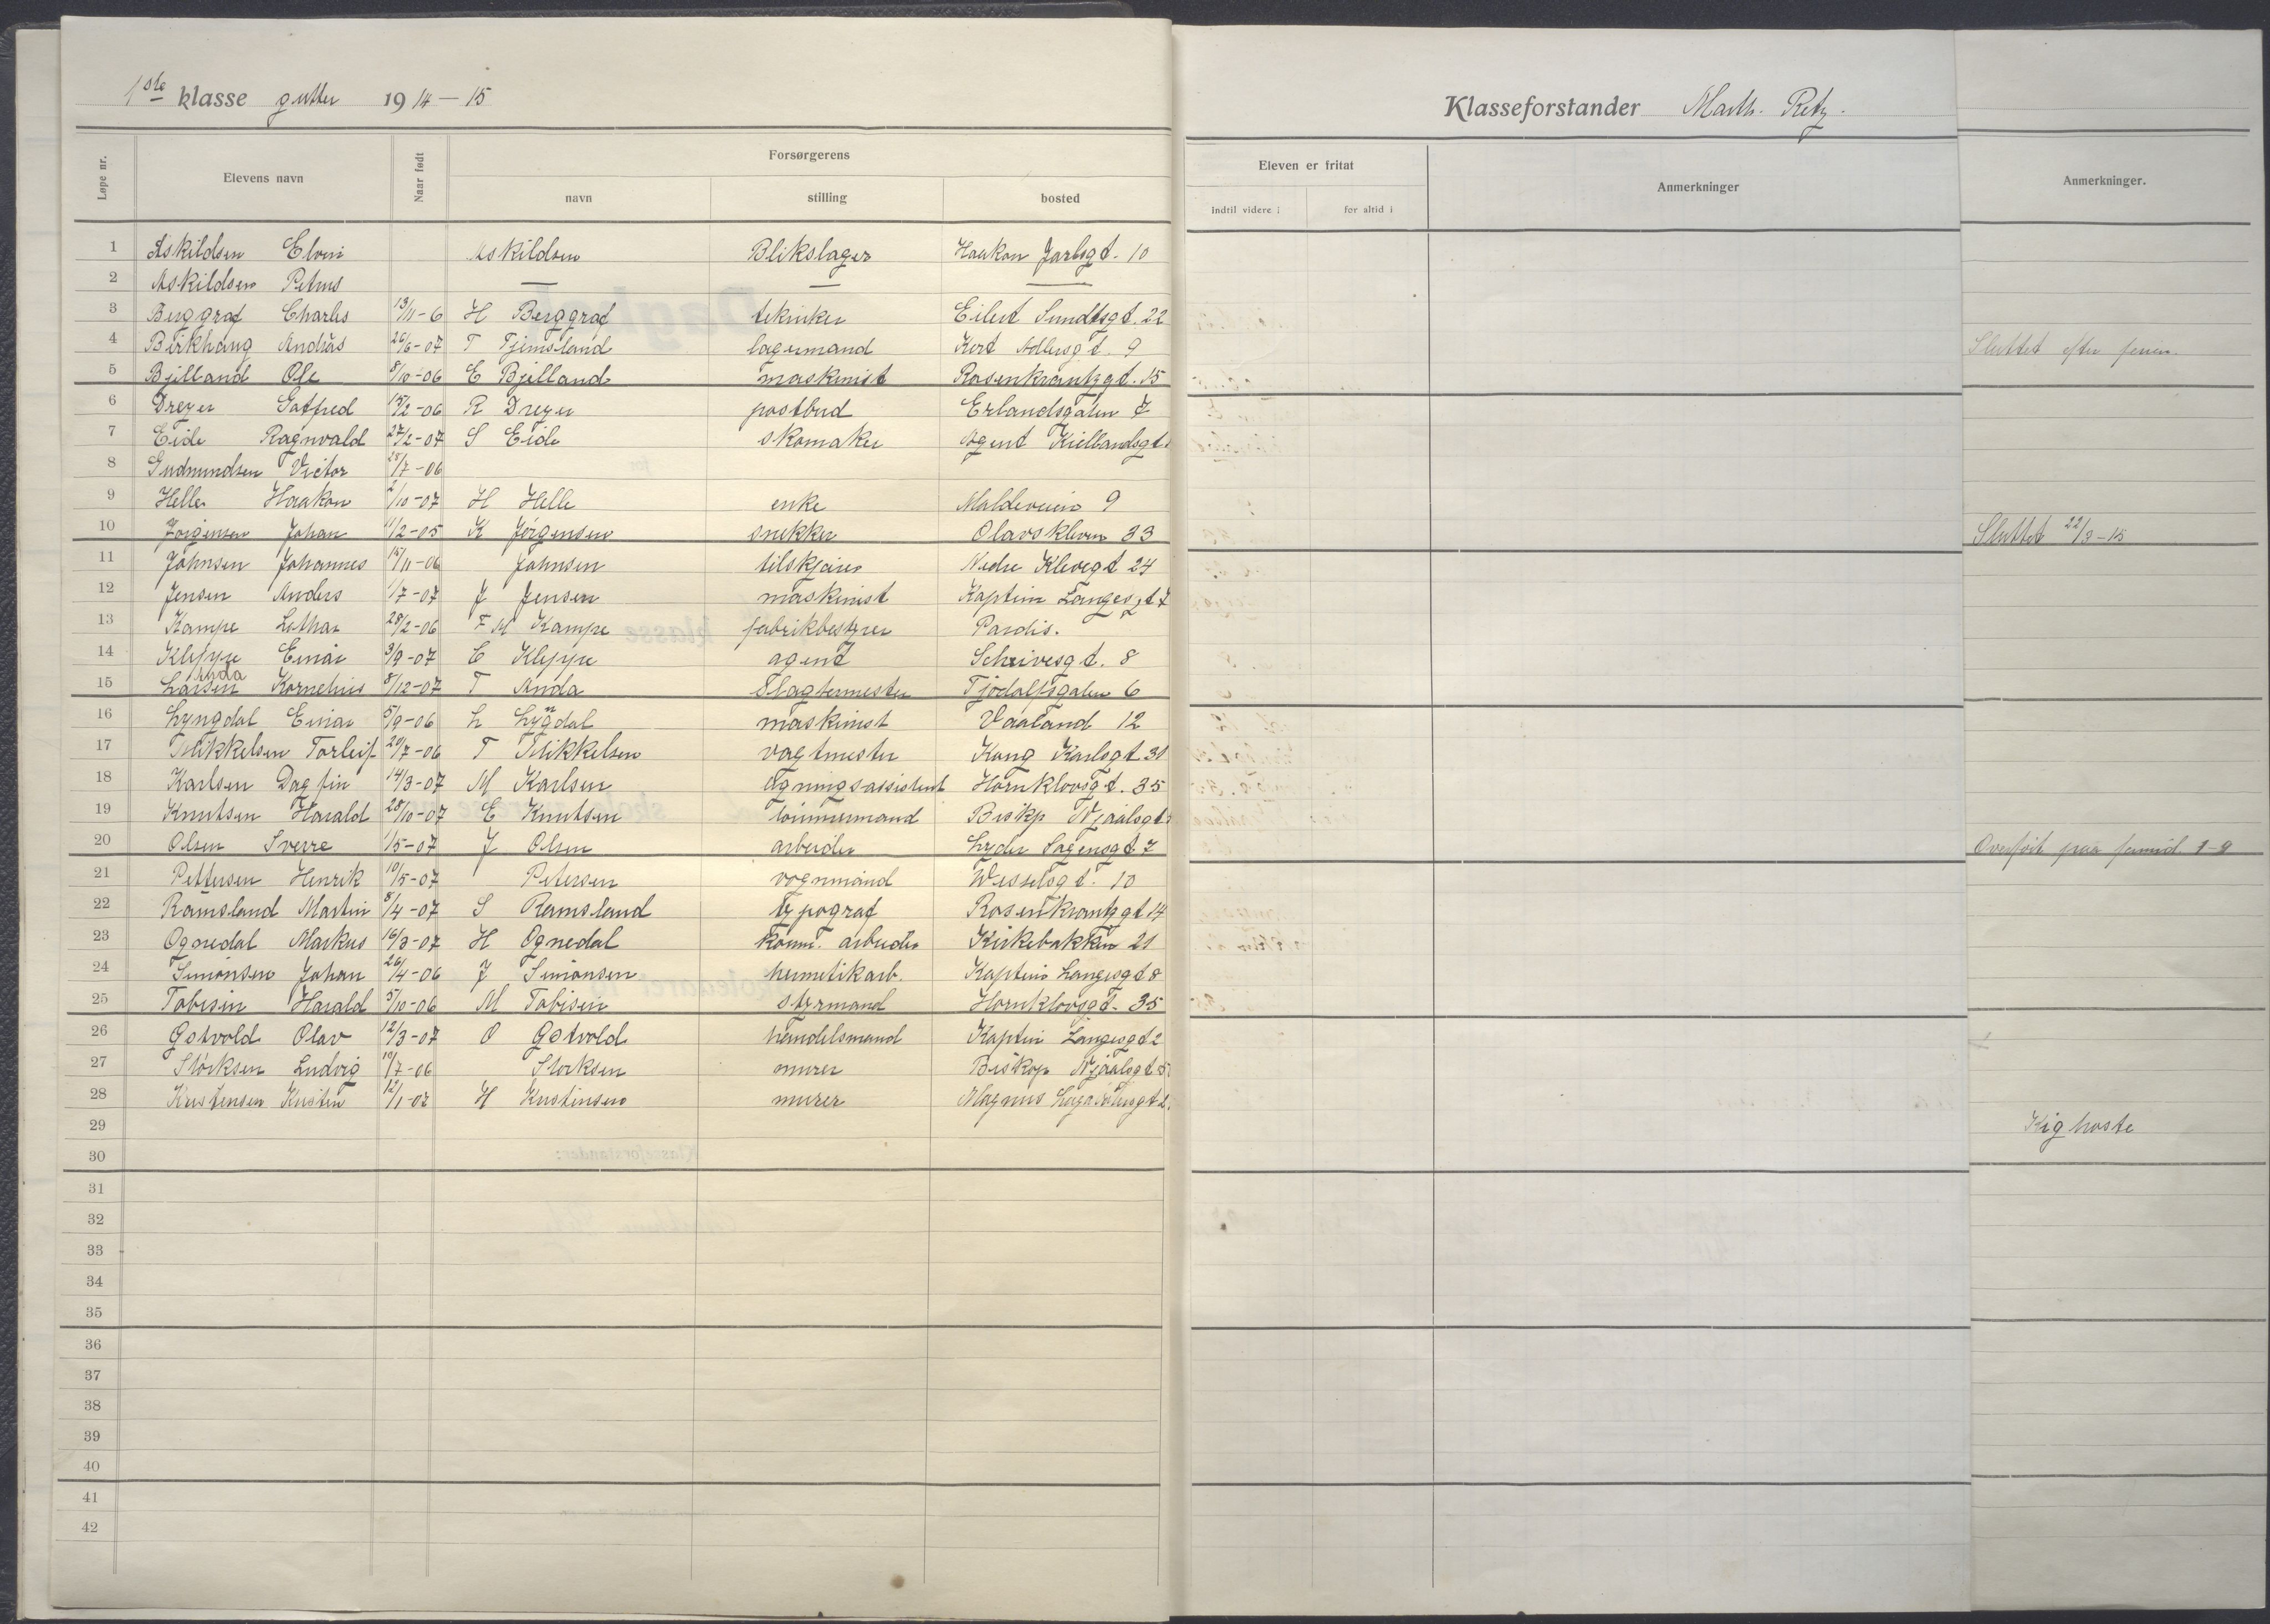 1ste klasse gutter 1914-15
Klasseforstander Math. Retz.
Løpe nr. Elevens navn Naar født Forsørgerens navn stilling bosted
Eleven er fritat indtil videre i for altid i Anmerkninger
Anmerkninger.
1 Askildsen Elvin Askildsen Blikslager Haakon Jarlsgt. 10
2 Askildsen Petrus — — —
3 Berggraf Charles 13/11-6 H Berggraf tekniker Eilert Sundtsgt. 22
4 Birkhaug Andrias 26/6-07 T Tjemsland lagermand Kort Adlersgt. 9 Sluttet efter ferien.
5 Bjelland Ole 8/10-06 E Bjelland maskinist Rosenkrantzgt. 15
6 Dreyer Gotfred 15/2-06 R Dreyer postbud Erlandsgaten 7
7 Eide Ragnvald 27/2-07 S Eide skomaker Agent Kiellandsgt.
8 Gudmundsen Victor 28/7-06
9 Helle Haakon 2/10-07 H Helle enke Maldeveien 9
10 Jørgensen Johan 11/2-05 K Jørgensen snekker Olavskleven 33 Sluttet 22/3-15
11 Johnsen Johannes 15/11-06 Johnsen tilskjærer Nedre Klevegt 24
12 Jensen Anders 1/7-07 J Jensen maskinist Kaptein Langesgt 7
13 Kampe Lothar 28/2-06 F M Kampe fabrikbestyrer Paradis.
14 Kleppe Einar 3/9-07 E Kleppe agent Schrivesgt. 8
15 Larsen Anda Kornelius 8/12-07 T Anda Slagtermester Tjodolfsgaten 6
16 Lyngdal Einar 5/9-06 L Lyngdal maskinist Vaaland 12
17 Mikkelsen Torleif 20/7-06 T Mikkelsen vagtmester Kong Karlsgt 31
18 Karlsen Dagfin 14/3-07 M Karlsen ligningsassistent Hornklovsgt. 35
19 Knutsen Harald 28/10-07 E Knutsen tømmermand Biskp Njaalsgt.
20 Olsen Sverre 1/5-07 J Olsen arbeider Lyder Sagensgt 7 Overført paa formid. 1-9
21 Pettersen Henrik 10/5-07 Petersen vognmand Wesselsgt. 10
22 Ramsland Martin 8/4-07 S Ramsland typograf Rosenkrantzgt 14
23 Ognedal Markus 16/3-07 H Ognedal komm. arbeider Kirkebakken 21
24 Simonsen Johan 26/4-06 J Simonsen hermetikarb. Kaptein Langesgt 8
25 Tobisen Harald 5/10-06 M Tobisen styrmand Hornklovsgt. 35
26 Gotvold Olav 12/3-07 O Gotvold handelsmand Kaptein Langesgt 2
27 Størksen Ludvig 10/7-06 Storksen murer Biskop Njaalsgt 5
28 Kristensen Kristen 12/1-07 H Kristensen murer Magnus Lagabøtersgt 2.
29 Kighoste
30
31
32
33
34
35
36
37
38
39
40
41
42